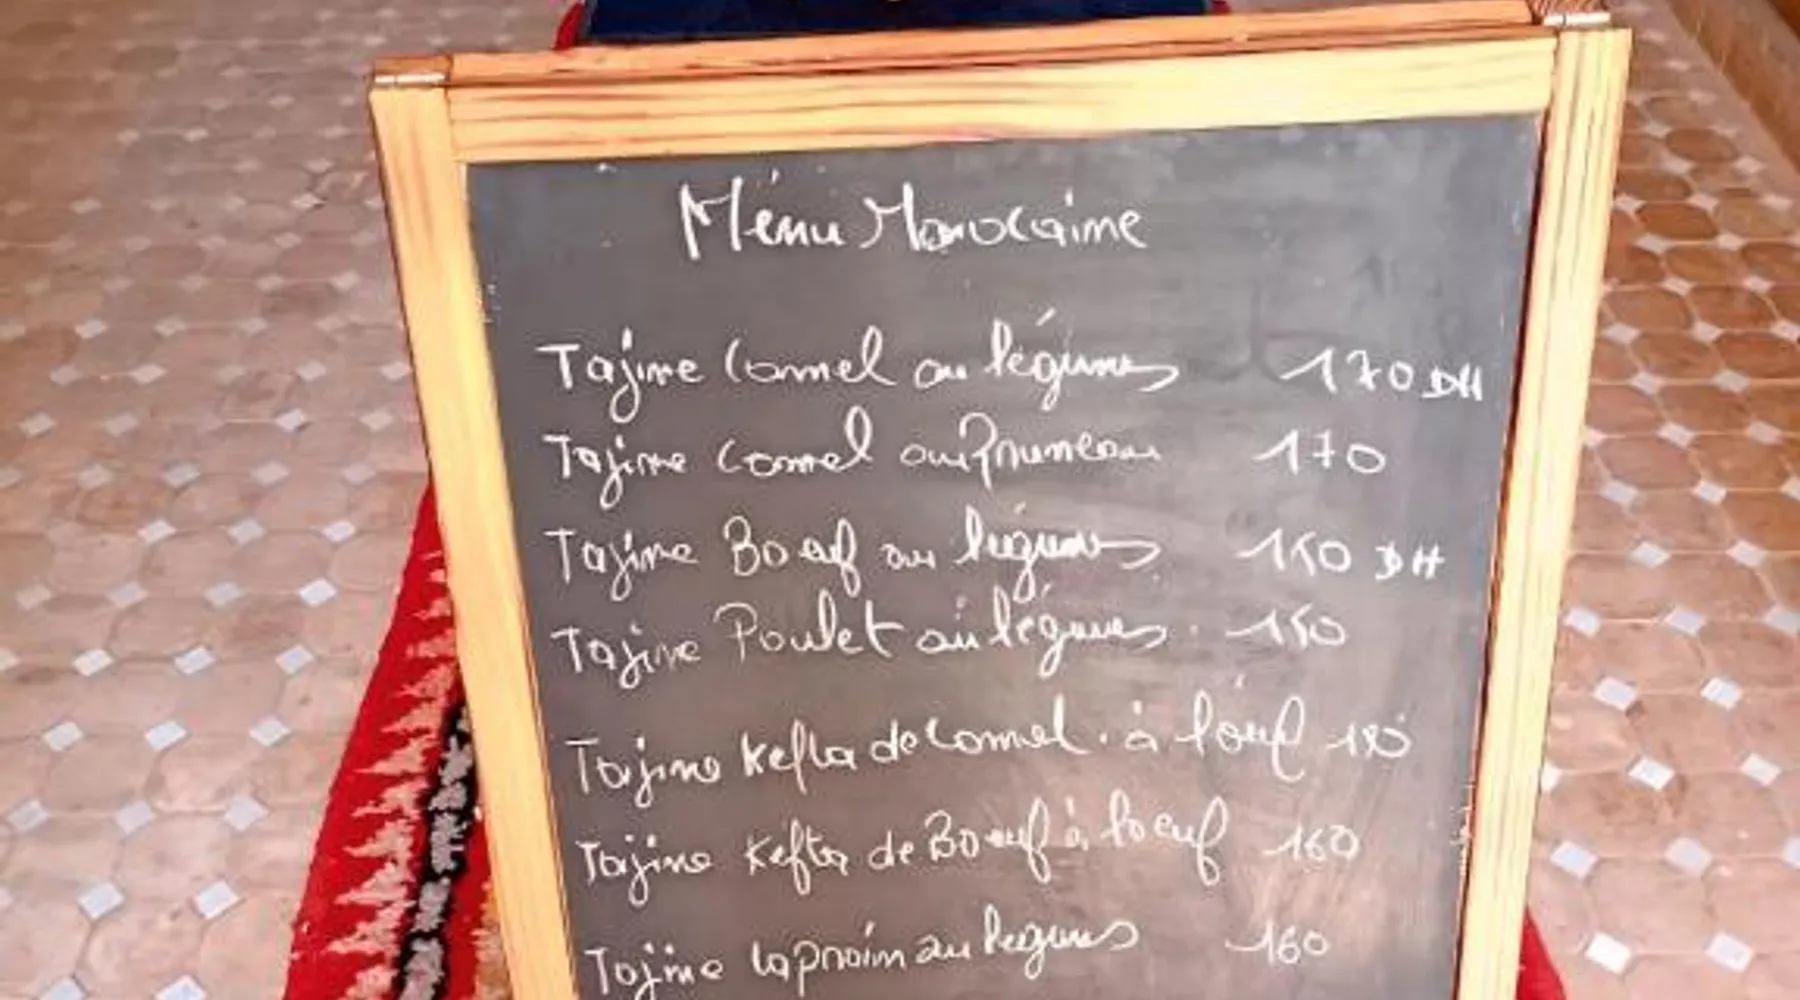 Ménu Marocaine
Tajine Camel au légumes 170 DH
Tajine Camel au Pruneau 170
Tajine Boeuf au légumes 150 DH
Tajine Poulet au légumes 150
Tajine Kefta de Camel à l'oeuf 180
Tajine Kefta de Boeuf à l'oeuf 160
Tajine laproim au légumes 160